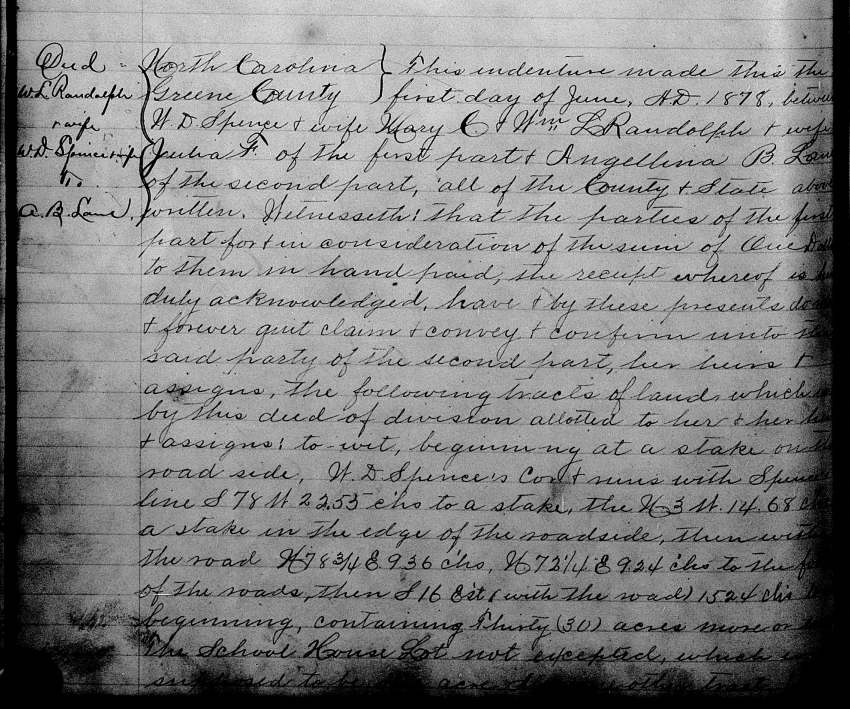 Deed
W. L. Randolph
& wife
W. D. Spence & wife
To
A. B. Lane
North Carolina } This indenture made this the
Greene County } first day of June, A.D. 1878, between
W. D. Spence & wife Mary C & Wm L Randolph & wife
Julia F. of the first part & Angellina B. Lane
of the second part, all of the County & State above
written. Witnesseth: that the parties of the first
part for & in consideration of the sum of One Dollar
to them in hand paid, the receipt whereof is
duly acknowledged, have & by these presents do
& forever quit claim & convey & confirm unto the
said party of the second part, her heirs &
assigns, the following tracts of land, which
by this deed of division allotted to her & her
& assigns: to-wit, beginning at a stake on the
road side, W. D Spence's Cor & runs with Spence
line S 78 W 22.55 chs to a stake, the N 3 W. 14.68 chs
a stake in the edge of the roadside, then with
the road N 78 3/4 E. 936 chs, N 72 1/4 E 924 chs to the
of the roads, then S 16 Est (with the road) 1524 chs to
beginning, containing Thirty (30) acres more or
the School House Lot not excepted, which
supposed to be acre tract